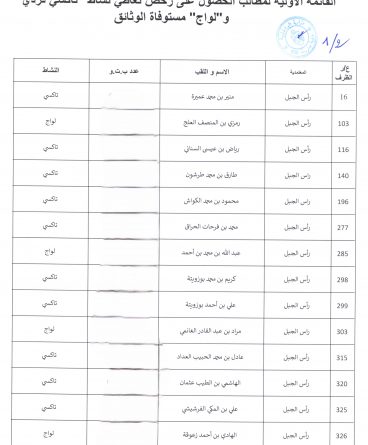 القائمة الأولية لمطالب الحصول على رخص تعاطي نشاط "تاكسي فردي"
و"لواج" مستوفاة الوثائق
1/2
ع/ر الظرف معتمدية الاسم و اللقب عدد ب.ت.و النشاط
16 رأس الجبل منير بن محمد عميرة تاكسي
103 رأس الجبل رمزي بن المنصف العلج لواج
116 رأس الجبل رياض بن عيسى السناني تاكسي
140 رأس الجبل طارق بن محمد طرشون تاكسي
196 رأس الجبل محمود بن محمد الكواش تاكسي
277 رأس الجبل محمد بن فرحات الحراق تاكسي
285 رأس الجبل عبد الله بن محمد بن أحمد لواج
298 رأس الجبل كريم بن محمد بوزويتة تاكسي
299 رأس الجبل علي بن أحمد بوزويتة تاكسي
303 رأس الجبل مراد بن عبد القادر الغانمي لواج
315 رأس الجبل عادل بن محمد الحبيب العداد تاكسي
320 رأس الجبل الهاشمي بن الطيب عثمان تاكسي
325 رأس الجبل علي بن المكي القرشيشي تاكسي
326 رأس الجبل الهادي بن أحمد زعوقة لواج